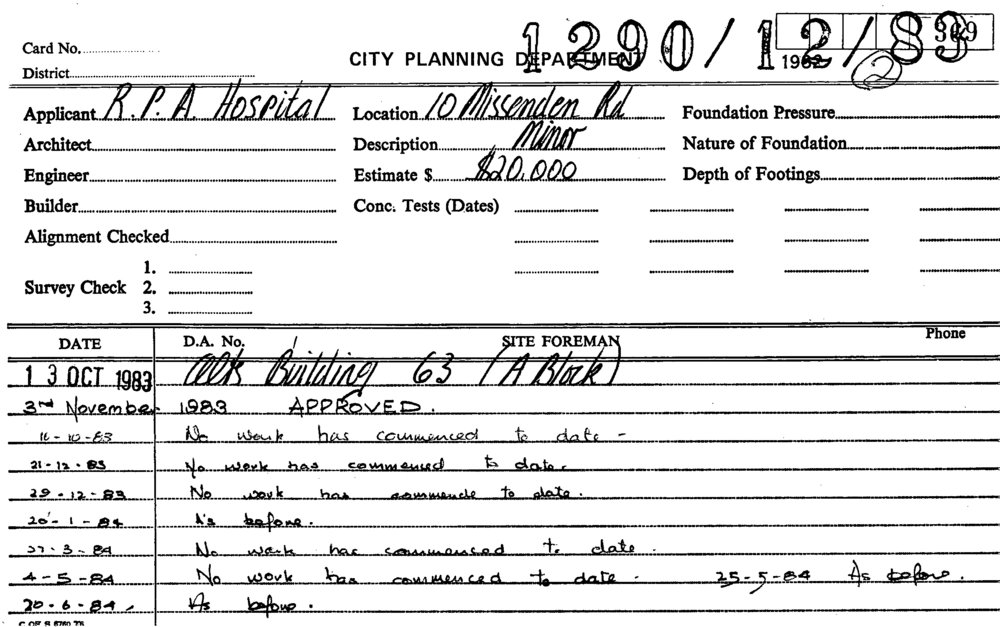 Card No. 1290/12/83 309
CITY PLANNING DEPARTMENT 1982 2
District
Applicant R.P.A. Hospital Location 10 Missenden Rd Foundation Pressure
Architect Description Minor Nature of Foundation
Engineer Estimate $ $20,000 Depth of Footings
Builder Conc. Tests (Dates)
Alignment Checked
1.
Survey Check 2.
3.
DATE D.A. No. SITE FOREMAN Phone
13 OCT 1983 Alts Building 63 (A Block)
3rd November 1983 APPROVED.
16-10-83 No work has commenced to date -
21-12-83 No work has commenced to date.
29-12-83 No work has commende to date.
20-1-84 As before.
27-3-84 No work has commenced to date.
4-5-84 No work has commenced to date. 25-5-84 As before.
20-6-84, As before.
C OF S 8760 75